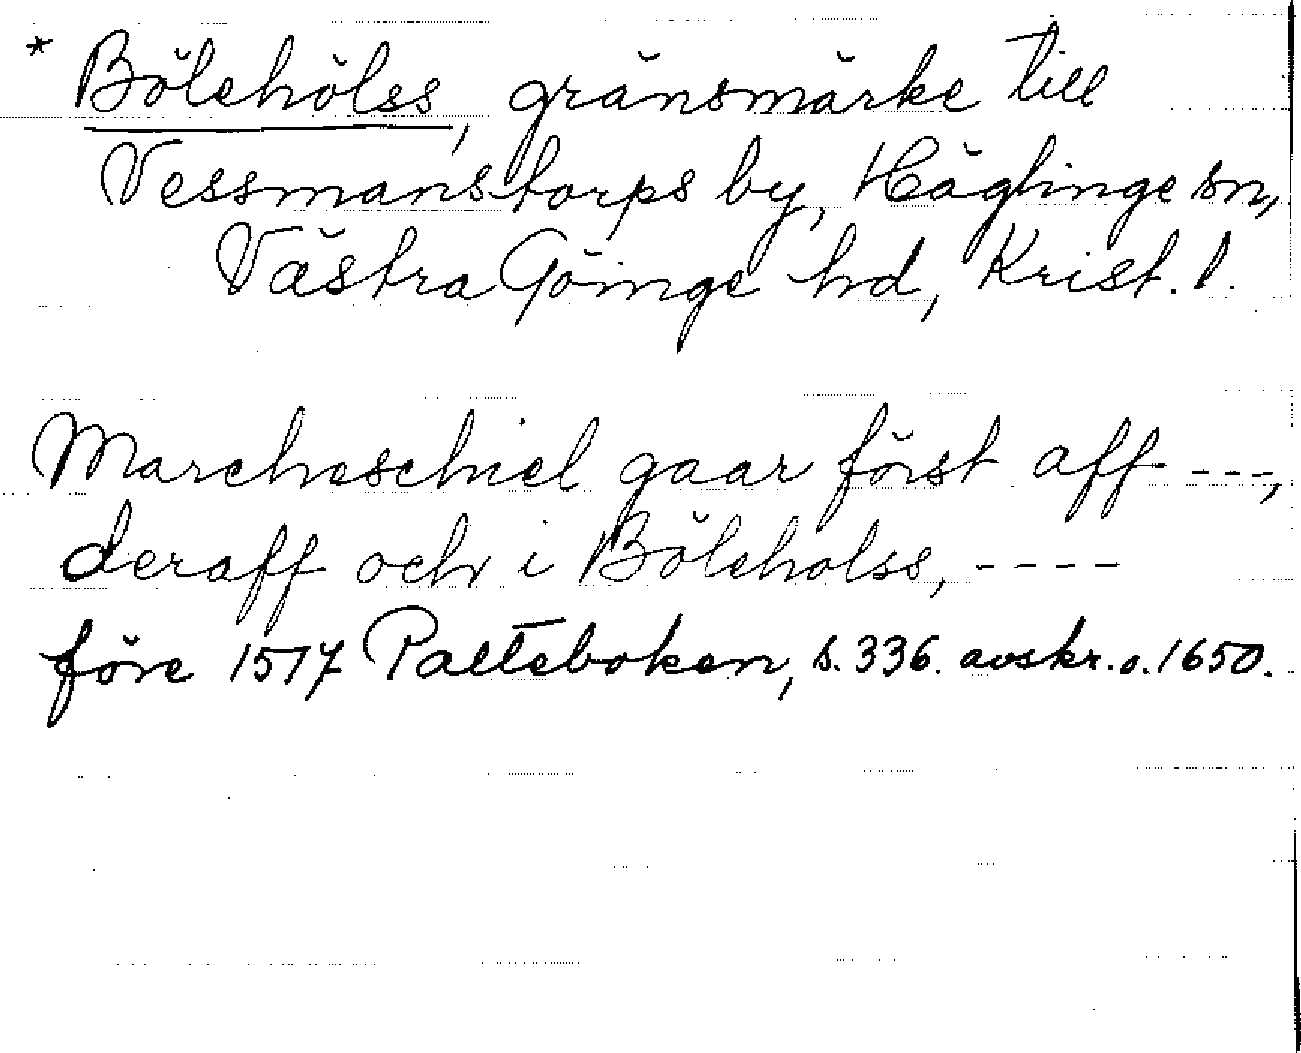 * Bölehölss, gränsmärke till
Vessmanstorps by, Häglinge sn,
Västra Göinge hd, Krist. l.
Marcheschiel gaar först aff ---,
deraff och i Böleholss, ----
före 1517 Palteboken, s. 336. avskr. o. 1650.